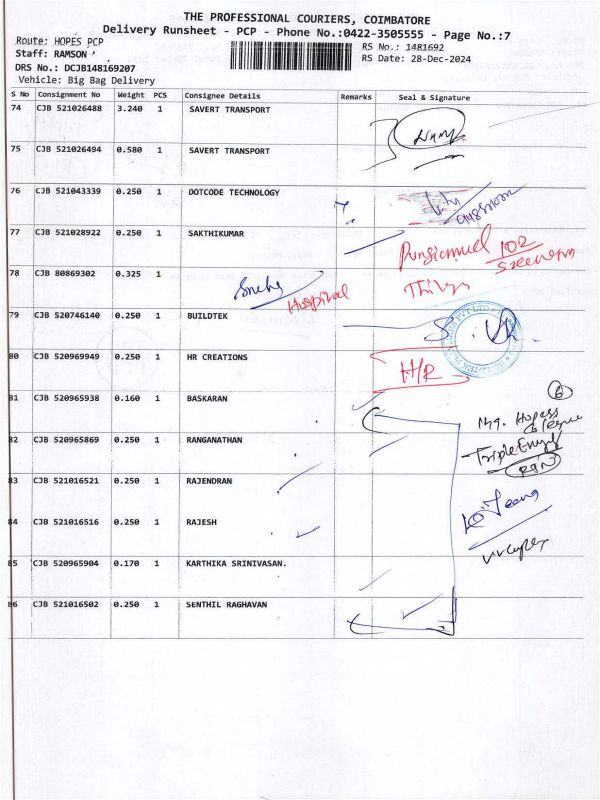 THE PROFESSIONAL COURIERS, COIMBATORE
Delivery Runsheet - PCP - Phone No.:0422-3505555 - Page No.:7
Route: HOPES PCP
RS No.: 1481692
Staff: RAMSON
RS Date: 28-Dec-2024
DRS No.: DCJB148169207
Vehicle: Big Bag Delivery
S No Consignment No Weight PCS Consignee Details Remarks Seal & Signature
74 CJB 521026488 3.240 1 SAVERT TRANSPORT
75 CJB 521026494 0.580 1 SAVERT TRANSPORT
76 CJB 521043339 0.250 1 DOTCODE TECHNOLOGY
77 CJB 521028922 0.250 1 SAKTHIKUMAR
102
78 CJB 80869302 0.325 1
Hospital
79 CJB 520746140 0.250 1 BUILDTEK
80 CJB 520969949 0.250 1 HR CREATIONS
H/R
81 CJB 520965938 0.160 1 BASKARAN
6
82 CJB 520965869 0.250 1 RANGANATHAN
83 CJB 521016521 0.250 1 RAJENDRAN
84 CJB 521016516 0.250 1 RAJESH
85 CJB 520965904 0.170 1 KARTHIKA SRINIVASAN.
86 CJB 521016502 0.250 1 SENTHIL RAGHAVAN